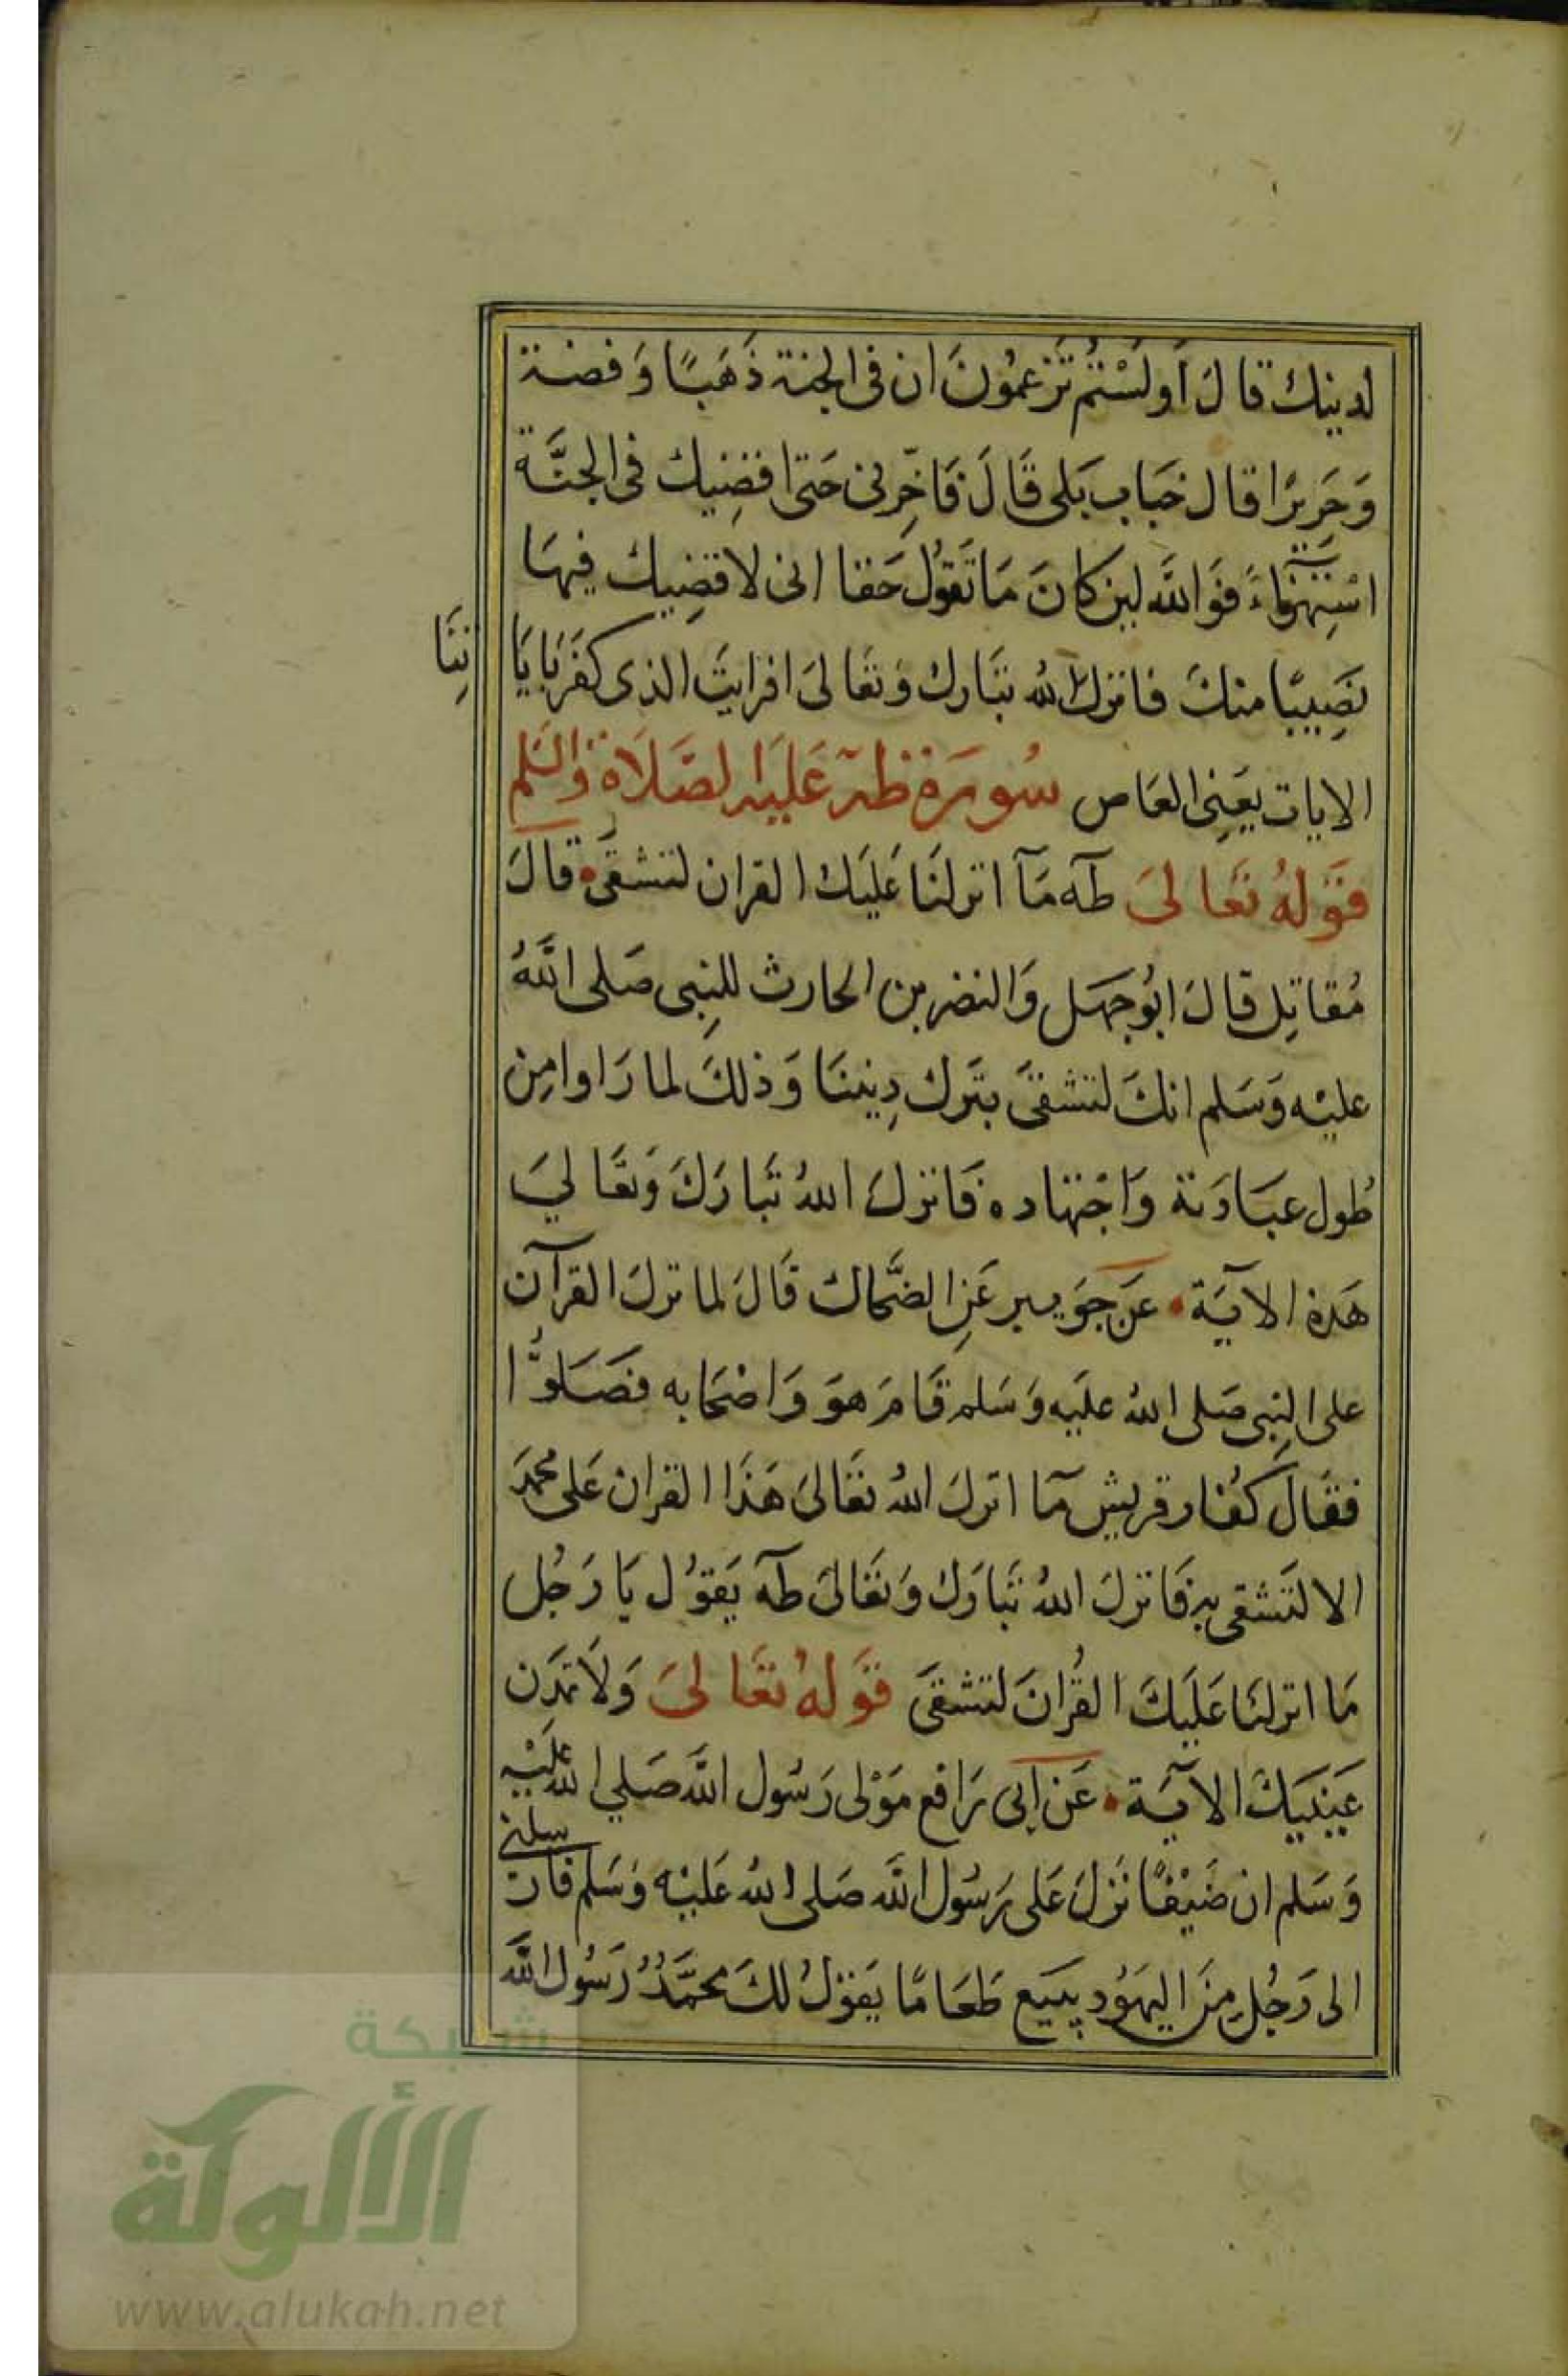 لدينك قالَ اَولَسْتُم تَزعمُونَ ان فى الجنة ذَهَبًا وَفضة
وَحَرِيرًا قال خبَاب بَلى قَالَ فَاخِّرنى حَتى اقضِيك فى الجنَّة
اسْتِهزَآءً فوَاللَّه لين كانَ مَا تَقولُ حَقا انى لاقضِيك فيهَا
نَصِيبًا منكَ فانزل الله تبَارك وَتعَالىَ افرايتَ الذى كفَر بَايَا
تِنَا
الايات يعَنِى العَاص سُورَة طَه عَليَه الصَلَاة وَالسَلم
قوَلهُ تعَالىَ طَه مَآ انزلنَا عَليَك القران لتشقَى قالَ
مُقاتِل قالَ ابُو جهَل وَالنضر بن الحارث للنِبى صَلى اللَّهُ
عليْه وَسَلم انكَ لتشقىَ بتَرك دِيننَا وَذلكَ لما رَاوا مِن
طُول عبَادَته وَاجْتهاده فَانزلَ اللهُ تبَارَكَ وَتعَاليَ
هَذه الايَة عَن جوَيبر عَنِ الضَّحاك قَالَ لما نزلَ القرآن
على النِبى صَلى اللهُ عليَه وَسَلم قَامَ هوَ وَاصْحَابه فصَلوُّا
فقَالَ كفُار قريش مَآ انزلَ اللهُ تعَالىَ هَذَا القران عَلى محمَد
الا لتَشقى به فَانزلَ اللهُ تبَارَك وَتعَالىَ طَه يَقوُل يَا رَجُل
مَا انزلنَا عَليَكَ القُرانَ لتشقىَ قوَلهُ تعَالىَ وَلاَ تمَدن
عَينَيكَ الايَة عَن اَبى رَافع مَوْلى رَسُول اللَّه صَلي الله عليْه
وَسَلم ان ضَيْفًا نزَلَ عَلى رَسُول اللَّه صَلى الله عَليْه وَسَلم فارسلنى
الى رَجُلٍ مِنَ اليَهوُد يبيَع طَعَامًا يَقوْلُ لكَ محمَّدُ رَسُول اللَّه
شبكة
الألوكة
www.alukah.net